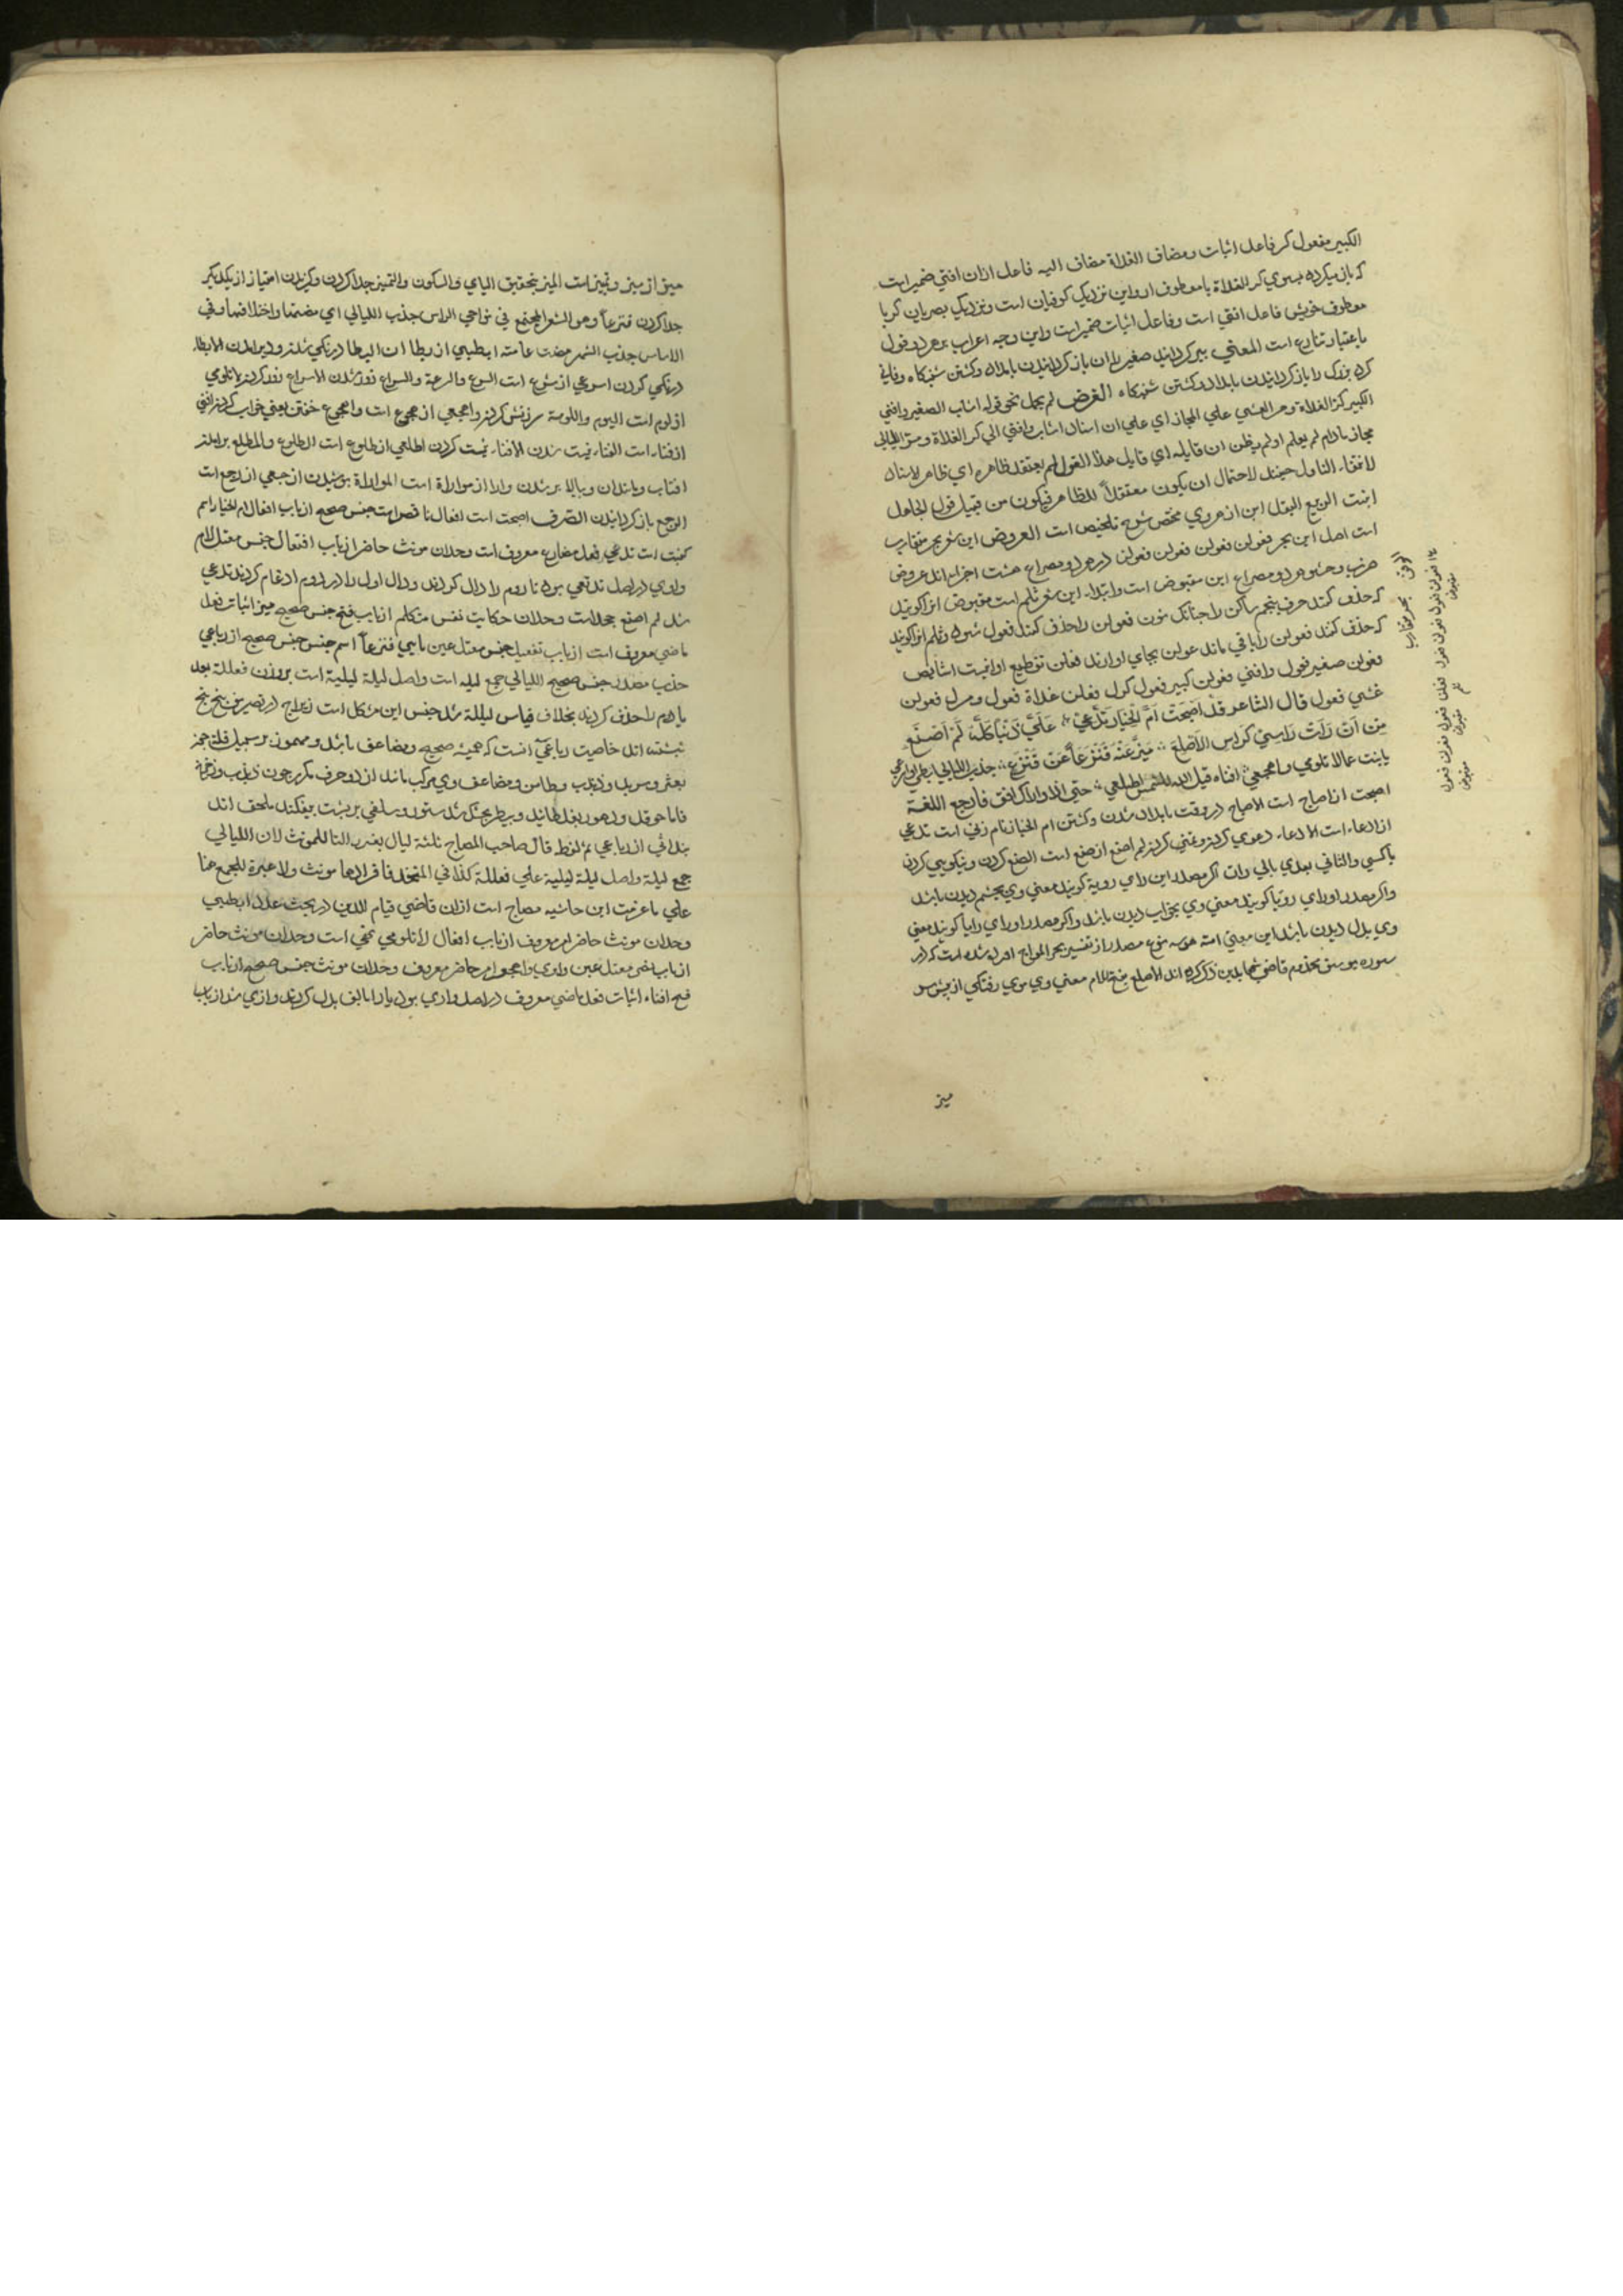 الكبير مفعول كر فاعل اثبات ومضاف الغداة مضاف اليه فاعل ازان افني ضمير است
كه باز ميكرده بسوي كر الغداة با معطوف او واين نزديك كوفيان است ونزديك بصريان كر با
معطوف خويش فاعل افني است وفاعل اثبات ضمير است واين وجه اعراب بر هر دو قول
باعتبار تنازع است المعني پير كردانيد صغير را ان باز كردانيدن بامداد وكشتن شبنكاه وفاني
كرد بزرك را باز كردانيدن بامداد وكشتن شبنكاه الغرض لم يحمل نحو قوله اشاب الصغير وافني
الكبير كر الغداة ومر العشي علي المجاز اي علي ان اسناد اشاب وافني الي كر الغداة ومر الليالي
مجاز مادام لم يعلم او لم يظن ان قايله اي قايل هذا القول لم يعتقد ظاهره اي ظاهر الاسناد
لانتفاء التاول حينئذ لاحتمال ان يكون معتقداً للظاهر فيكون من قبيل قول الجاهل
انبت الربيع البقل اين از هروي مختص شرح تلخيص است العروض اين شعر بحر متقارب
است اصل اين بحر فعولن فعولن فعولن فعولن در هر دو مصراع هشت اجزا اند عروض
ضرب وحشو هر دو مصراع اين مقبوض است وابتداء اين شعر اثلم است مقبوض انرا كويند
كه حذف كنند حرف پنجم ساكن را چنانك نون فعولن را حذف كنند فعول شود وثلم انرا كويند
كه حذف كنند فعولن را باقي ماند عولن بجاي او ارند فعلن تقطيع او اينست اشابص
فعولن صغير فعول وافني فعولن كبير فعول كرل فعلن غداة فعول ومرل فعولن
عشي فعول قال الشاعر قد اَصْبَحَتْ اُمُّ الْخِيَارِ تَدَّعِيْ عَلَيَّ ذَنْباً كُلُّهُ لَمْ اَصْنَعِ
مِنْ اَنْ رَاَتْ رَاسِيْ كَرَاسِ الاَصْلَعِ مَيَّزَ عَنْهُ قُنْزُعاً عَنْ قُنْزُعِ جذب الليالي ابطئي او اسرعي
يابنت عما لا تلومي واهجعي افناه قيل الله للشمس اطلعي حتي اذا واراك افق فارجعي اللغة
اصبحت از اصباح است الاصباح در وقت بامداد شدن وكشتن ام الخيار نام زني است تدعي
از ادعاء است الادعاء دعوي كردن وتمني كردن لم اصنع از صنع است الصنع كردن ونيكويي كردن
باكسي والثاني بعدي بالي رات اكر مصدر اين راي روية كويند معني وي بچشم ديدن باشد
واكر مصدر او راي رويا كويند معني وي بخواب ديدن باشد واكر مصدر او راي رايا كويند معني
وي بدل ديدن باشد اين معني مصدر از تفسير بحر المواج اورده شده است كه در
سوره يوسف مخدوم قاضي شهابالدين ذكر كرده اند الاصلع بفتح اللام معني وي موي رفتكي از پيش سر
ميز
افق بحر متقارب
فعولن فعول فعولن فعول فعلن فعول فعولن فعول
مقبوض مقبوض مقبوض
ميز از ميز وتميز است الميز بتحقيق الياي والسكون والتميز جدا كردن وكزيدن امتياز از يكديكر
جدا كردن قنزعاً وهو الشعر المجتمع في نواحي الراس جذب الليالي اي مضتها واختلافها وفي
الاساس جذب الشهر مضت عامته ابطيي از بطا ان البطا درنكي شدن ودير امدن الابطاء
درنكي كردن اسرعي از سرع است السرع والسرعة والسراع زود شدن الاسراع زود كردن لا تلومي
از لوم است اليوم واللومة سرزنش كردن واهجعي از هجوع است والهجوع خفتن يعني خواب كردن افني
از فناء است الفناء نيست شدن الافناء نيست كردن اطلعي از طلوع است الطلوع والمطلع برامدن
افتاب ومانند ان وببالا بر شدن وارا از مواراة است المواراة پوشيدن ارجعي از رجع است
الرجع باز كردانيدن الصّرف اصبحت است افعال ناقص است جنس صحيح از باب افعال ام الخيار اسم
كنيت است تدعي فعل مضارع معروف است وحدان مونث حاضر از باب افتعال جنس معتل لام
واوي در اصل تدتعي بود تا دوم را دال كردند ودال اول را در دوم ادغام كردند تدعي
شد لم اصنع جحد است وحدان حكايت نفس متكلم از باب فتح جنس صحيح ميز اثبات فعل
ماضي معروف است از باب تفعيل جنس معتل عين يايي قنزعاً اسم جنس جنس صحيح از رباعي
جذب مصدر جنس صحيح الليالي جمع ليله است واصل ليلة ليلية است بروزن فعللة بعد
يا هم را حذف كردند بخلاف قياس ليللة شد جنس اين مشكل است زيراچ در تصريف پنج پنج
نبشته اند خاصيت رباعي انست كه هميشه صحيح ومضاعف باشد ومهموز بر سبيل قلة چون
بعثر وسربل وذبذب وطامن ومضاعف وي مركب باشد از دو حرف مكرر چون ذبذب وزخزح
فاما حوقل ودهور بغلطانيد وبيطر بجنك شد ستور وسلقي بر پشت بيفكند ملحق اند
بثلاثي از رباعي نه لفظ قال صاحب المصباح ثلثة ليال بغير التا للمونث لان الليالي
جمع ليلة واصل ليلة ليلية علي فعللة كذا في المتخذ فافرادها مونث ولا عبرة للجمع هنا
علي ما عرفت اين حاشيه مصباح است ازان قاضي قيام الدين در بحث عدد ابطيي
وحدان مونث حاضر امر معروف از باب افعال لا تلومي نهي است وحدان مونث حاضر
از باب ماضي معتل عين واوي واهجعي امر حاضر معروف وحدان مونث جنس صحيح از باب
فتح افناه اثبات فعل ماضي معروف در اصل واوي بود يا را بالف بدل كردند وازي شد از باب